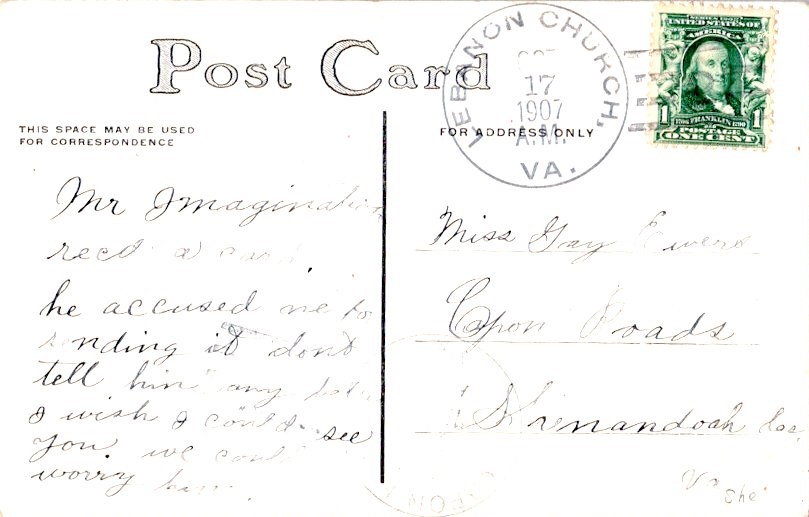 Post Card
THIS SPACE MAY BE USED
FOR CORRESPONDENCE
FOR ADDRESS ONLY
LEBANON CHURCH,
17
1907
A.M.
VA.
SERIES 1902
UNITED STATES OF
AMERICA
1706 FRANKLIN 1790
POSTAGE
1 ONE CENT 1
Mr Imagination
recd a card
he accused me for
sending it dont
tell him any
I wish I could see
you we could
worry him
Miss Gay
Cpon Roads
Shenandoah Co
Va
She